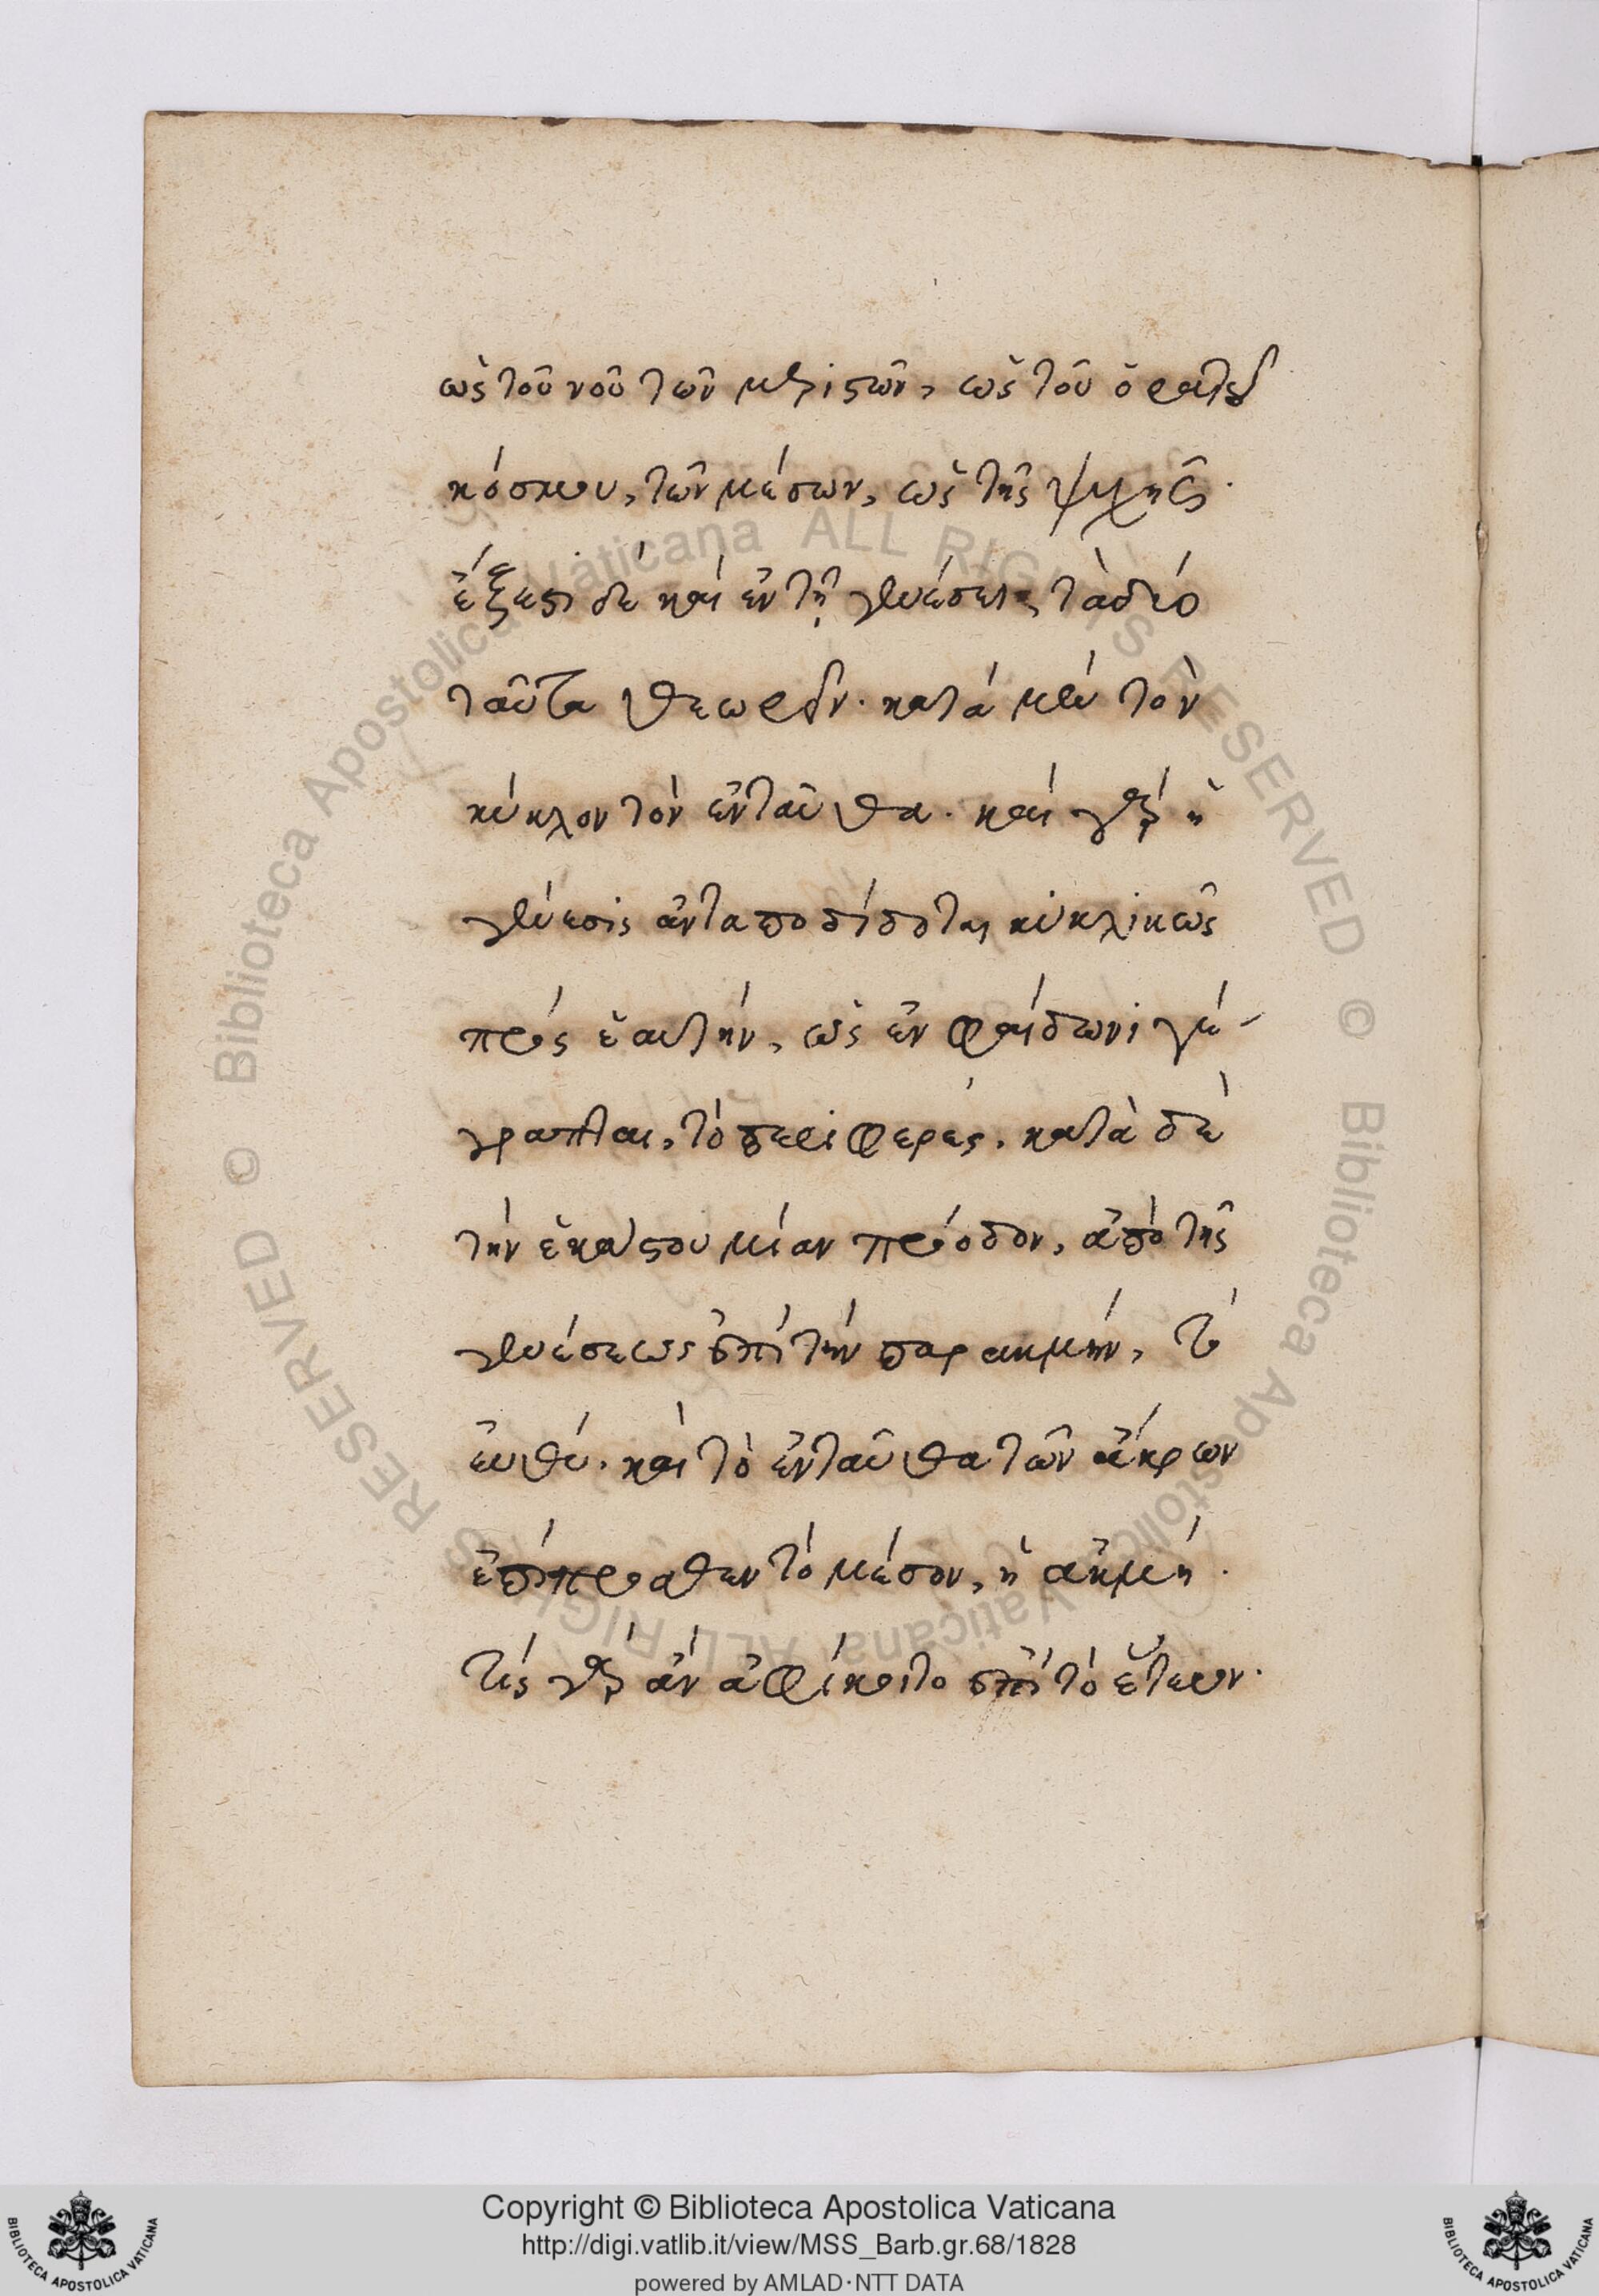 ὡς τοῦ νοῦ τῶν μεριστῶν, ὡς τοῦ ὁρατοῦ
κόσμου, τῶν μέσων, ὡς τῆς ψυχῆς.
ἔξεστι δὲ καὶ ἐν τῇ γενέσει τὰ δύο
ταῦτα θεωρεῖν. κατά μὲν τὸν
κύκλον τὸν ἐνταῦθα. καὶ γὰρ ἡ
γένεσις ἀνταποδίδοται κυκλικῶς
πρός ἑαυτήν, ὡς ἐν φαίδωνι γέ-
γραπται, τὸ περιφερές. κατὰ δὲ
τήν ἑκάστου μίαν πρόοδον, ἀπὸ τῆς
γενέσεως ἐπί τήν παρακμήν, τό
ἐυθύ. καὶ τὸ ἐνταῦθα τῶν ἄκρων
ἐπίπροσθεν τό μέσον, ἡ ἀκμή.
τίς γὰρ ἀν ἀφίκοιτο ἐπί τό ἕτερον.
Copyright © Biblioteca Apostolica Vaticana
http://digi.vatlib.it/view/MSS_Barb.gr.68/1828
powered by AMLAD·NTT DATA
BIBLIOTECA APOSTOLICA VATICANA
BIBLIOTECA APOSTOLICA VATICANA
© Biblioteca Apostolica Vaticana ALL RIGHTS RESERVED
© Biblioteca Apostolica Vaticana ALL RIGHTS RESERVED